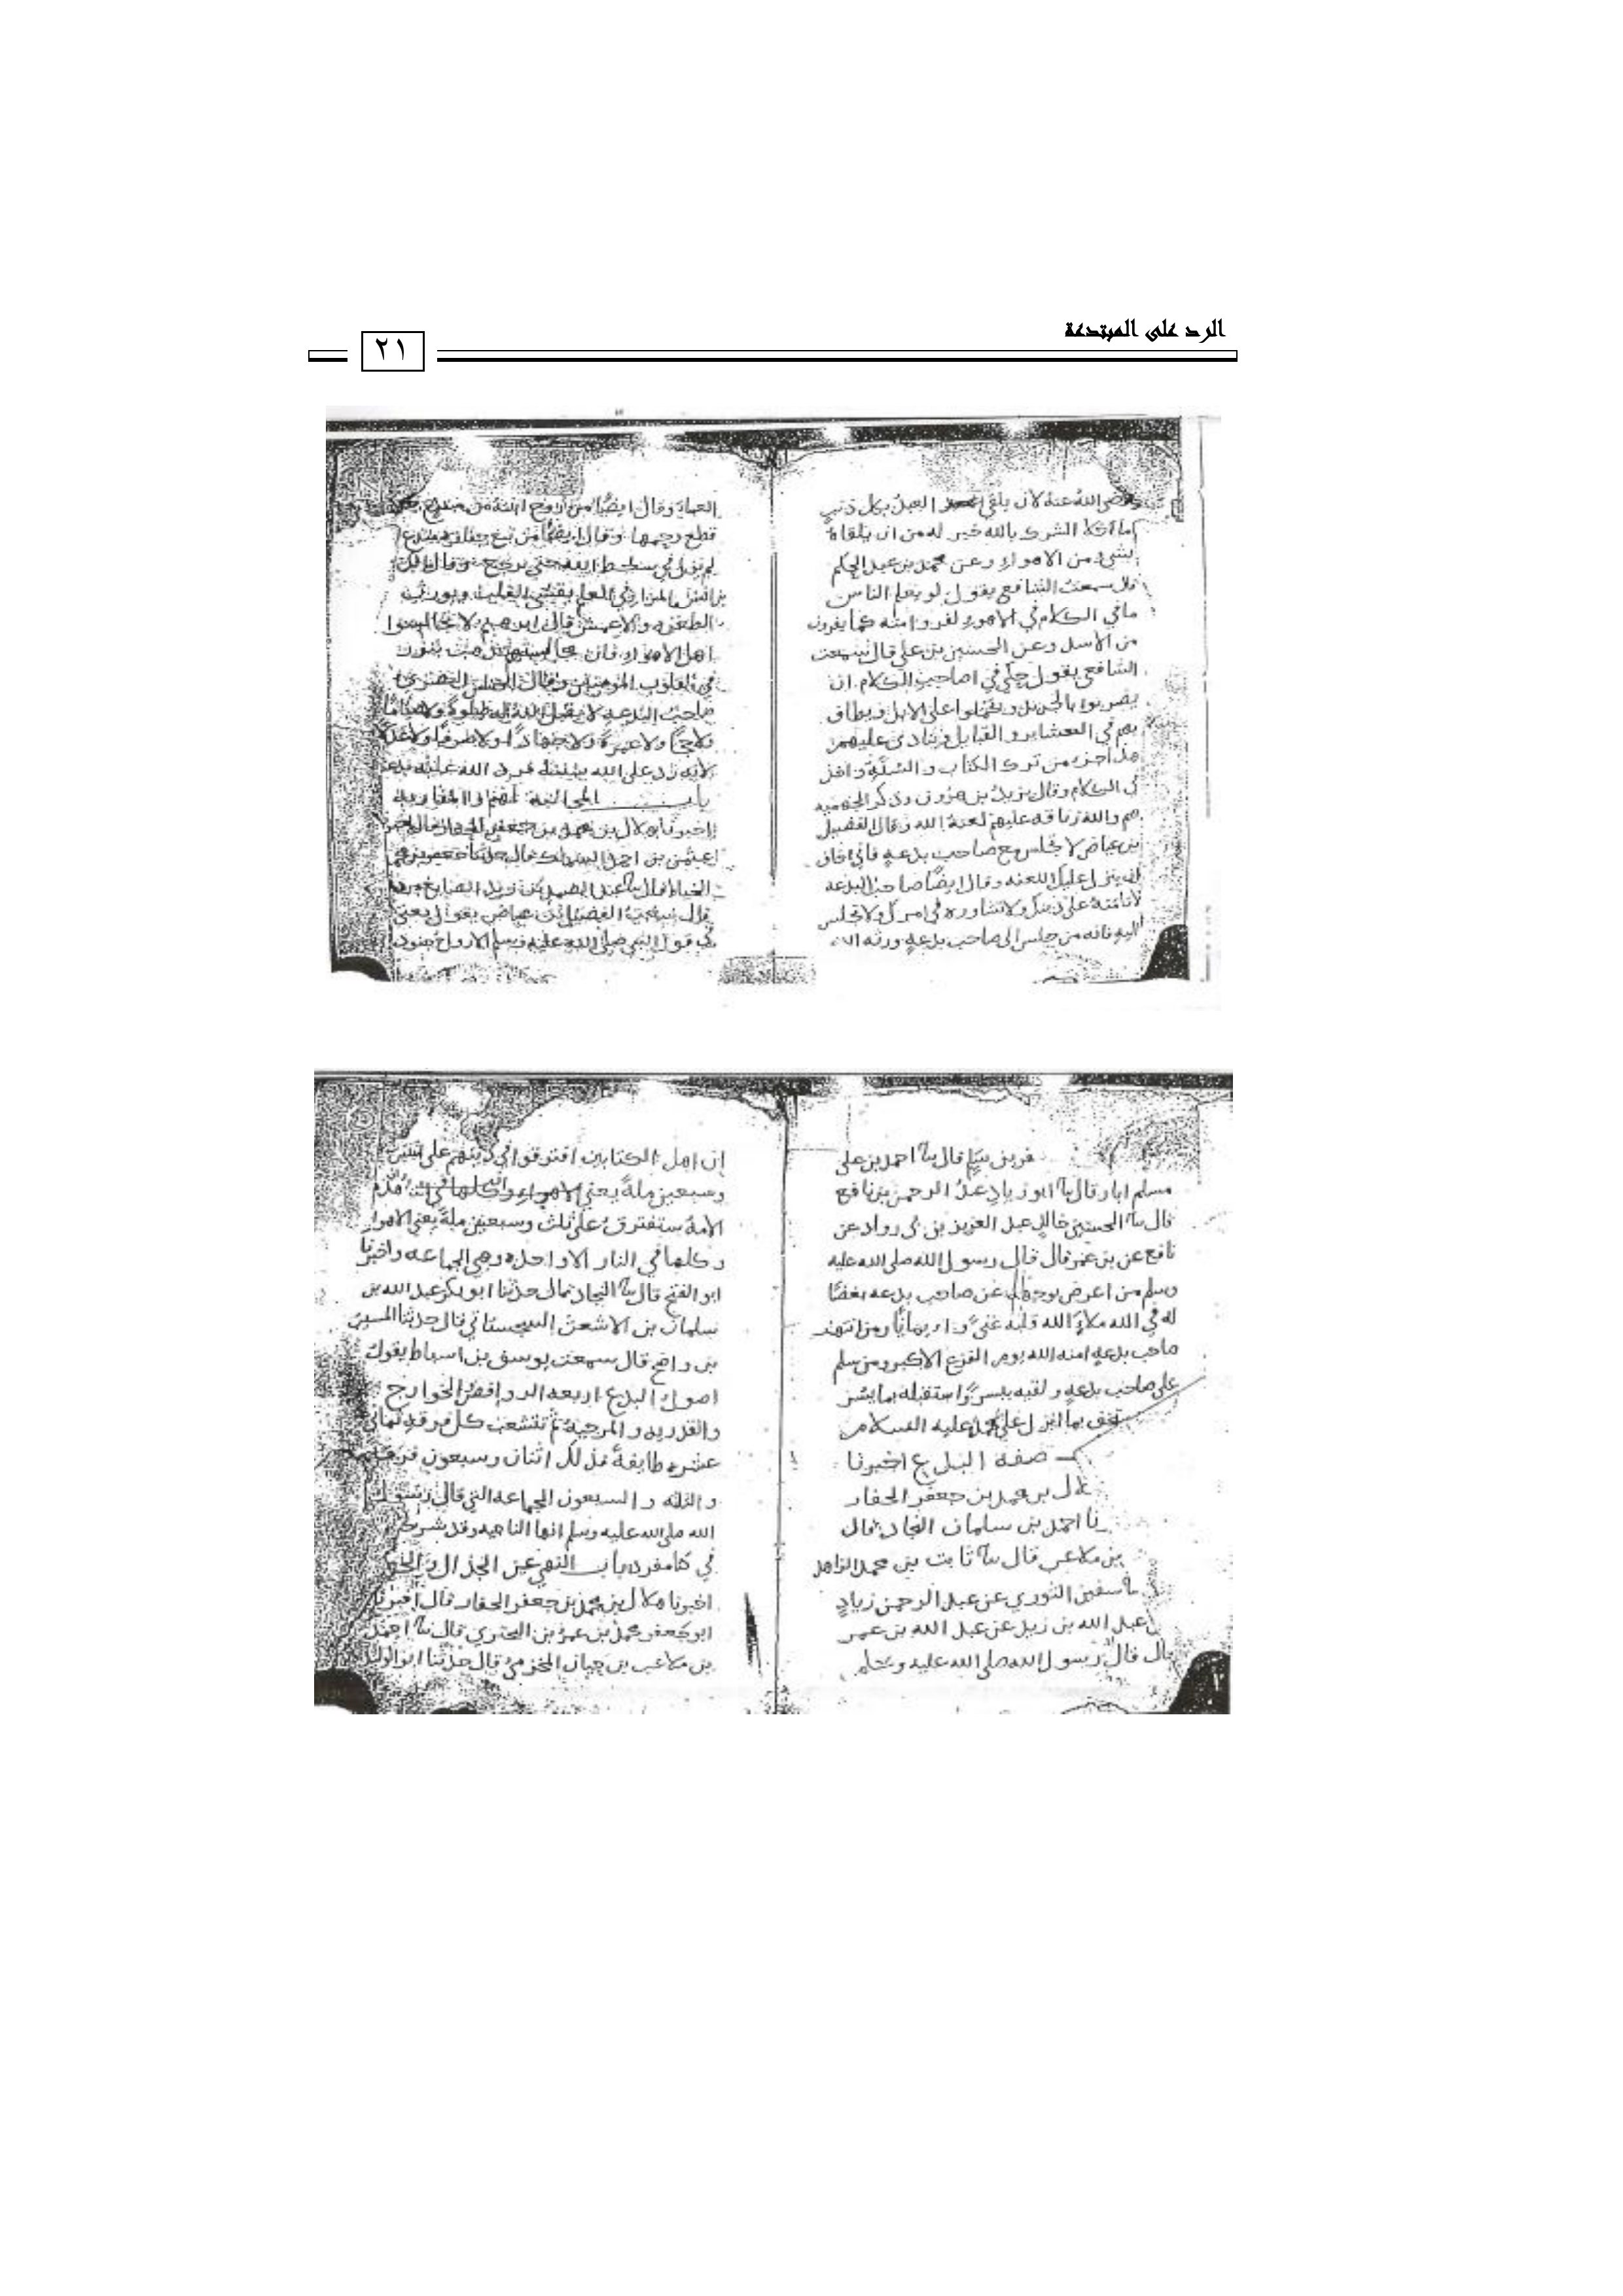 الرد على المبتدعة
٢١
الله عنه لان يلقى العبد بكل ذنب
ما خلا الشرك بالله خير له من ان يلقاه
بشي من الاهواء وعن محمد بن عبد الحكم
قال سمعت الشافعي يقول لو يعلم الناس
ما في الكلام في الاهواء لفروا منه كما يفرون
من الاسد وعن الحسين بن علي قال سمعت
الشافعي يقول حكمي في اصاحب الكلام ان
يضربوا بالجريد ويحملوا على الابل ويطاف
بهم في العشاير والقبايل وينادى عليهم
هذا جزء من ترك الكتاب والسنة واخذ
في الكلام وقال يزيد بن هرون وذكر الجهمية
هم والله زنادقه عليهم لعنة الله وقال الفضيل
بن عياض لا تجلس مع صاحب بدعه فاني اخاف
ان ينزل عليك اللعنه وقال ايضا صاحب البدعه
لا تامنه على دينك ولا تشاوره في امرك ولا تجلس
اليه فانه من جلس الى صاحب بدعه ورثه الله
العما وقال ايضا من زوج ابنته من مبتدع
قطع رحمها وقال ايضا من تبع جنازه مبتدع
لم يزل في سخط الله حتى يرجع وقال
بن انس المرا في العلم يقسي القلب ويورث
الطغن والاعمش قال ابرهيم لا تجالسوا
اهل الاهواء فان مجالستهم تذهب بنور
في القلوب وقال الحسن البصري
صاحب البدعه لا يقبل الله له صلوة ولا صياما
ولا حجا ولا عمرة ولا جهادا ولا صرفا ولا عدلا
لانه رد على الله
باب المجالسة
اخبرنا هلال بن محمد بن جعفر الحفار قال اخبرنا
عثمن بن احمد السماك قال حدثنا جعفر بن محمد
الخياط قال ثنا عبد الصمد بن يزيد الصايغ
قال سمعت الفضيل بن عياض يقول يعني
في قول النبي صلى الله عليه وسلم الارواح جنود
قال ثنا احمد بن علي
مسلم ابار قال ثنا ابو زياد عبد الرحمن بن نافع
قال ثنا الحسين خالد عبد العزيز بن ابي رواد عن
نافع عن بن عمر قال قال رسول الله صلى الله عليه
وسلم من اعرض بوجهه عن صاحب بدعه بغضا
له في الله ملأ الله قلبه وايمانا ومن انتهر
صاحب بدعه امنه الله يوم الفزع الاكبر ومن سلم
على صاحب بدعه ولقيه بيسر واستقبله بما يسر
بما انزل على محمد عليه السلام
صفة البدع اخبرنا
بن محمد بن جعفر الحفار
نا احمد بن سلمان النجاد قال
بن ملاعب قال ثنا ثابت بن محمد الزاهد
سفين الثوري عن عبد الرحمن زياد
عبد الله بن زيد عن عبد الله بن عمر
قال قال رسول الله صلى الله عليه وسلم
ان اهل الكتابين افترقوا في دينهم على اثنين
وسبعين ملة يعني الاهواء وكلها في النار هذه
الامة ستفترق على ثلث وسبعين ملة يعني الاهواء
وكلها في النار الا واحده وهي الجماعه واخبرنا
ابو الفتح قال ثنا النجاد قال حدثنا ابو بكر عبد الله بن
سلمان بن الاشعث السجستاني قال حدثنا المسيب
بن واضح قال سمعت يوسف بن اسباط يقول
اصول البدع اربعه الروافض الخوارج
والقدريه والمرجية ثم تتشعب كل فرقه ثماني
عشره طايفة فذلك اثنان وسبعون فرقه
والثالثه والسبعون الجماعه التي قال رسول
الله صلى الله عليه وسلم انها الناجيه وقد شرحته
في كتاب مفرد باب النهي عن الجدال
اخبرنا هلال بن محمد بن جعفر الحفار قال اخبرنا
ابو جعفر محمد بن عمرو بن البختري قال ثنا احمد
بن ملاعب بن حيان المخرمي قال حدثنا ابو الوليد